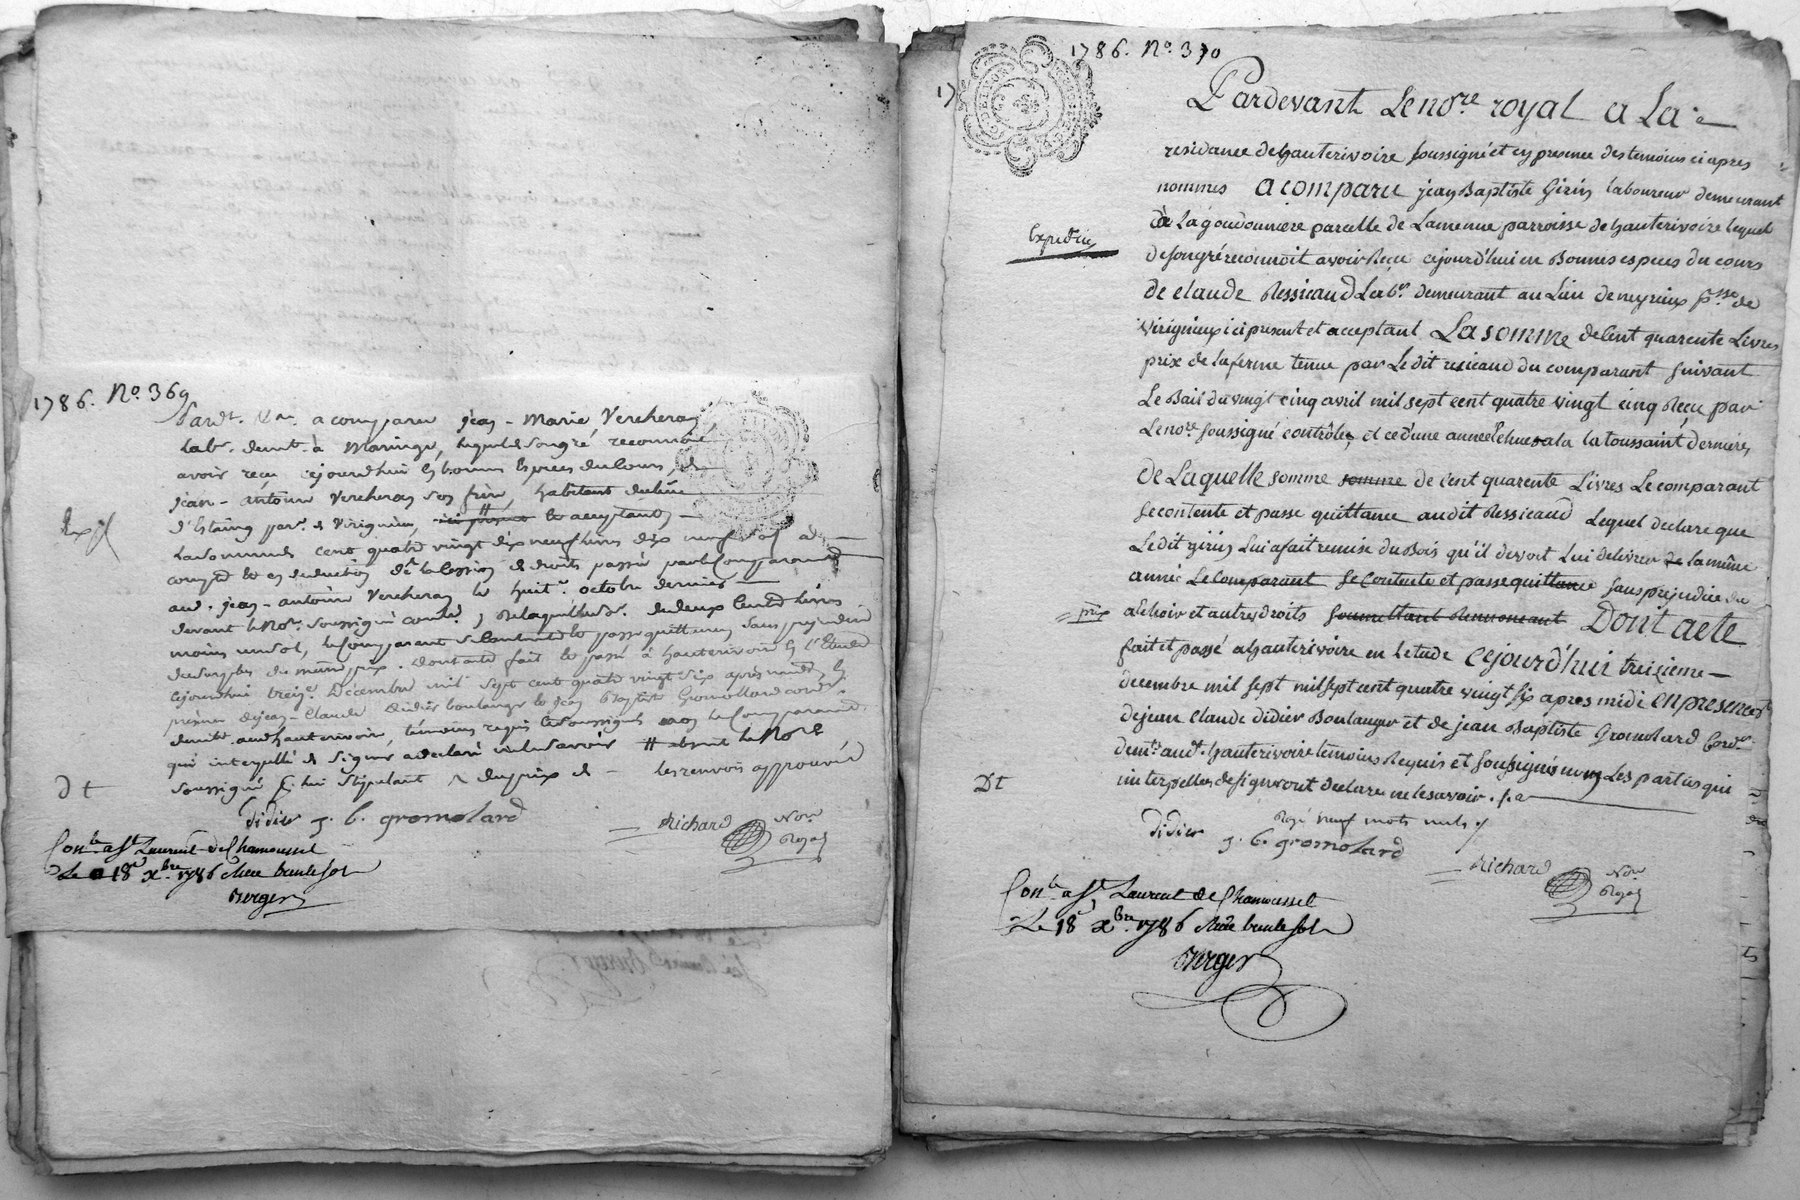 1786. No. 369
Pard.t Etc. a comparu jean-Marie Vercheras,
Lab.r demt. à Maringe, lequel de son gré reconnoit
avoir reçu cejourdhui en bonnes Especes du Cours, de
jean-antoine Vercheras son frere, habitant du lieu
d'Estaing parr. de Virigneu, ici present et acceptant,
La somme de cent quatre vingt dix neuf livres dix neuf sols à
compte et en deduction de la Cession de droits passée par le Comparant
aud. jean-antoine Vercheras le huit.e octobre dernier
devant le No.re soussigné cont.lé, de laquelle de. de deux Cents livres
moins un sol, le Comparant se Contente et passe quittance sans prejudice
du surplus du meme prix. Dont acte fait et passé à hauterivoire En l'Etude
cejourdhui treiz.e Décembre mil sept cent quatre vingt six après midi, En
présence de jean-Claude Didier boulanger et jean Baptiste Gromollard cord.r
demts. aud. hauterivoire, témoins requis et soussignés non le Comparant
qui interpellé de signer a declaré ne le savoir # absent le No.re
soussigné pr. lui stipulant du prix de les renvois approuvés
Didier j. b. gromolard
Richard No.re Royal
dt
Con.lé a St. Laurent de Chamousset
Le 18 xbre. 1786 Reçu trente sols
Berger
1786. No. 370
Pardevant Le nore. royal a La
residance de hauterivoire soussigné et en presence des temoins ci apres
nommés a comparu jean Baptiste Girin laboureur demeurant
à La goudonniere parcelle de Lamenue parroisse de hauterivoire lequel
Expediée
de son gré reconnoit avoir Reçu cejourd'hui en Bonnes especes du cours
de claude Ressicaud Labr. demeurant au Lieu de neyrieux psse. de
virignieux ici present et acceptant La somme de Cent quarente Livres
prix de la ferme tenue par Le dit ressicaud du comparant suivant
Le Bail du vingt cinq avril mil sept cent quatre vingt cinq Reçu par
Le nore. soussigné contrôlé, et ce d'une année Echue a la toussaint derniere
de Laquelle somme somme de Cent quarente Livres Le comparant
se contente et passe quittance au dit Ressicaud Lequel declare que
Le dit girin Lui a fait remise du Bois qu'il devoit Lui delivrer de la même
année Le comparant se Contente et passe quittance sans prejudice du
prix
a échoir et autres droits soumettant Renonceant Dont acte
fait et passé a hauterivoire en letude Cejourd'hui treizieme
decembre mil sept mil sept cent quatre vingt six apres midi En presence
de jean Claude didier Boulanger et de jean Baptiste Gromolard Cord.r
demts. audt. hauterivoire temoins Requis et soussignés non Les parties qui
interpellées de signer ont declaré ne le savoir. /.
Dt
Rayé neuf mots nuls /.
didier j. b. gromolard
Richard No.re Royal
Con.lé a St. Laurent de Chamousset
Le 18 xbre. 1786 Reçu trente sols
Berger